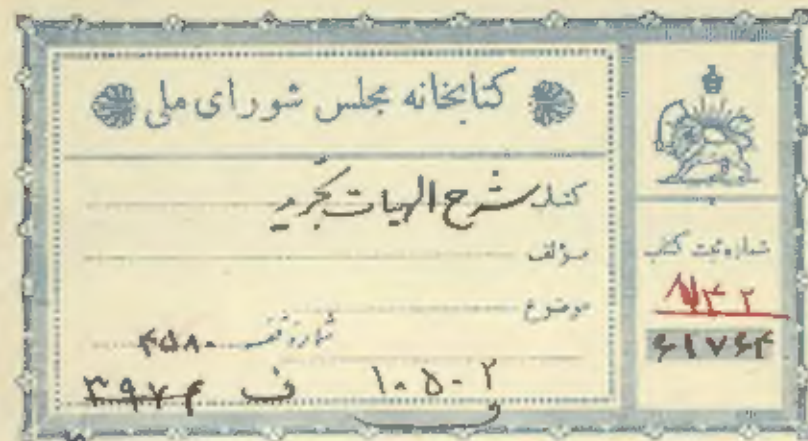 کتابخانه مجلس شورای ملی
کتاب شرح الهیات تجرید
مؤلف
موضوع
شماره قفسه ۴۵۸۰
۱۰۵۰۲
ف ۳۹۷۴
شماره ثبت کتاب
۶۱۷۶۴